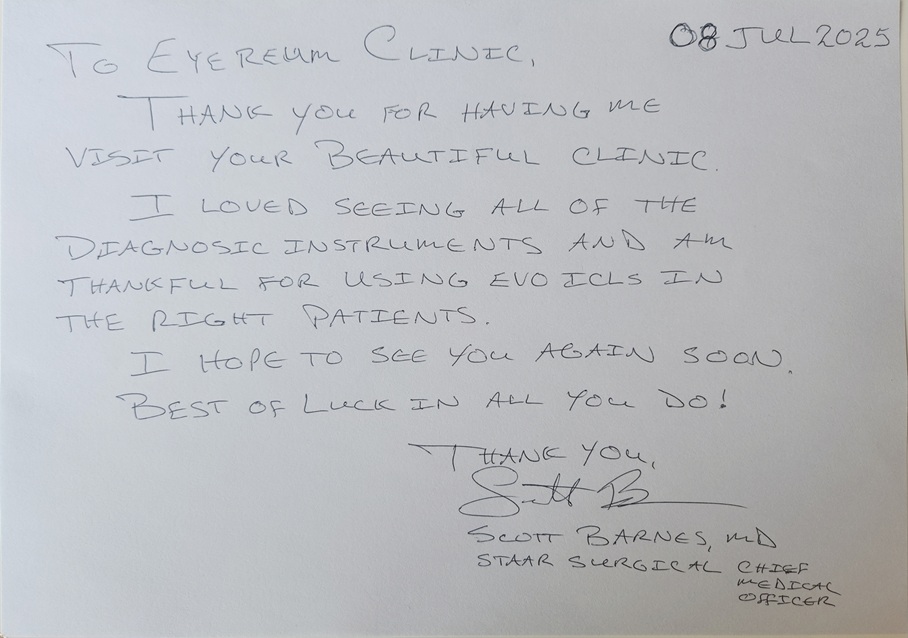 08 JUL 2025
To EYEREUM CLINIC,
THANK YOU FOR HAVING ME
VISIT YOUR BEAUTIFUL CLINIC.
I LOVED SEEING ALL OF THE
DIAGNOSIC INSTRUMENTS AND AM
THANKFUL FOR USING EVO ICLS IN
THE RIGHT PATIENTS.
I HOPE TO SEE YOU AGAIN SOON.
BEST OF LUCK IN ALL YOU DO!
THANK YOU,
Scott B
SCOTT BARNES, MD
STAAR SURGICAL CHIEF
MEDICAL
OFFICER